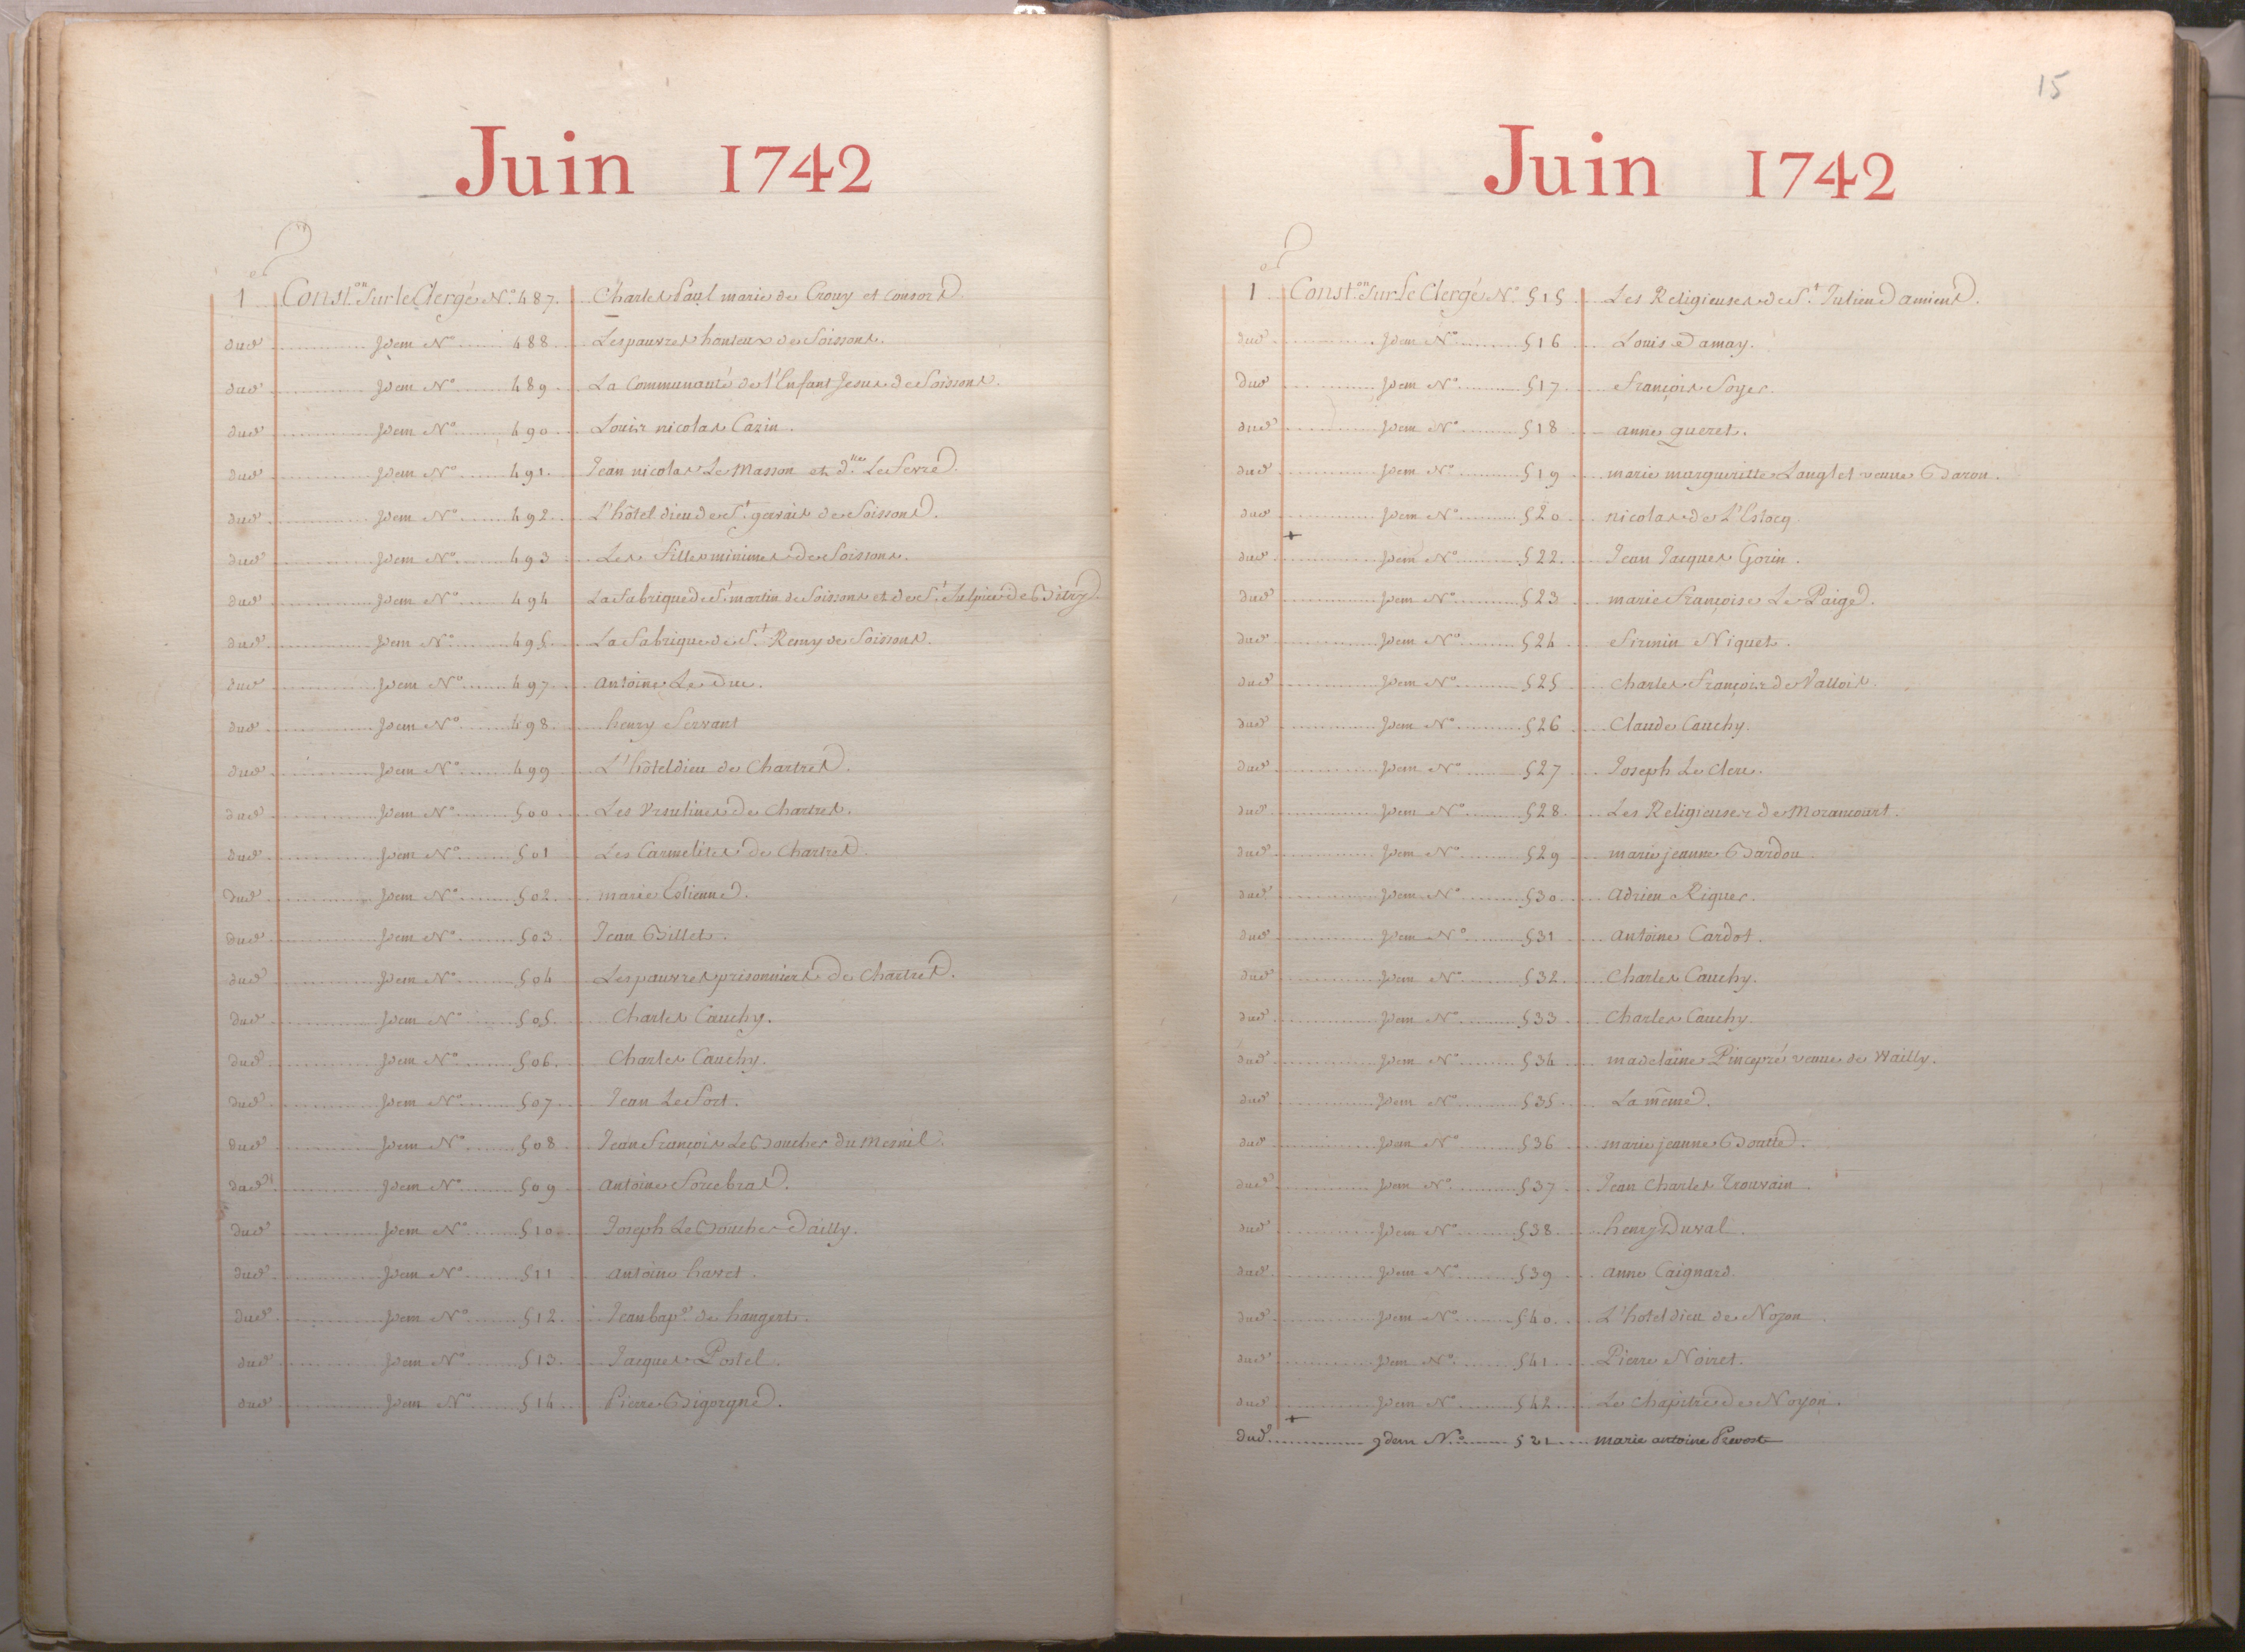 Juin 1742
1er Const.on sur le Clergé N.o 487. Charles Paul marie de Crouy et consors
dud. Idem No 488 Les pauvres honteux de Soissons.
dud. Idem No 489 La Communauté de l'Enfant Jesus de Soissons.
dud. Idem No 490 Louis nicolas Cazin.
dud. Idem No 491. Jean nicolas Le Masson et d.lle Le Ferre.
dud. Idem No 492. L'hôtel dieu de St. gervais de Soissons.
dud. Idem No 493 Les filles minimes de Soissons.
dud. Idem No 494 La fabrique de St. martin de Soissons et de St. Sulpice de Bitry
dud. Idem No 495. La fabrique de St. Remy de Soissons.
dud. Idem No 497. antoine Le Duc.
dud. Idem No 498. henry Servant
dud. Idem No 499 L'hôteldieu de Chartres.
dud. Idem No 500 Les Ursulines de Chartres.
dud. Idem No 501 Les Carmelites de Chartres.
dud. Idem No 502. marie Estienne.
dud. Idem No 503 Jean Billet.
dud. Idem No 504 Les pauvres prisonniers de Chartres.
dud. Idem No 505. Charles Cauchy.
dud. Idem No 506. Charles Cauchy.
dud. Idem No 507 Jean Le Fort.
dud. Idem No 508 Jean François Le Boucher du Mesnil.
dud. Idem No 509 antoine Forcebras.
dud. Idem No 510 Joseph Le Boucher Dailly.
dud. Idem No 511 antoine havet.
dud. Idem No 512. Jean bap.e de hangest.
dud. Idem No 513. Jacques Postel.
dud. Idem No 514 Pierre Bigorgne.
15
Juin 1742
1er Const.on sur le Clergé No. 515 Les Religieuses de St. Julien Damiens.
dud. Idem No 516 Louis Damay.
dud. Idem No 517. François Soyer.
dud. Idem No 518 anne queret.
dud. Idem No 519 marie margueritte Langlet veuve Baron.
dud. Idem No 520 nicolas de L'Estocq.
+
dud. Idem No 522. Jean Jacques Gorin.
dud. Idem No 523 marie Françoise Le Paige.
dud. Idem No 524 Firmin Niquet.
dud. Idem No 525 Charles François de Vallois.
dud. Idem No 526 Claude Cauchy.
dud. Idem No 527 Joseph Le Clerc.
dud. Idem No 528. Les Religieuses de Morancourt.
dud. Idem No 529 marie jeanne Bardou
dud. Idem No 530 adrien Riquer.
dud. Idem No 531 antoine Cardot.
dud. Idem No 532 Charles Cauchy.
dud. Idem No 533 Charles Cauchy.
dud. Idem No 534 madelaine Pincepré veuve de Wailly.
dud. Idem No 535 La même.
dud. Idem No 536 marie jeanne Boutté.
dud. Idem No 537 Jean Charles Trouvain.
dud. Idem No 538 henry Duval.
dud. Idem No 539 anne Caignard.
dud. Idem No 540. L'hoteldieu de Noyon.
dud. Idem No 541 Pierre Noiret.
dud. Idem No 542 Le Chapitre de Noyon.
+
dud. Idem No. 521 marie antoine Prevost